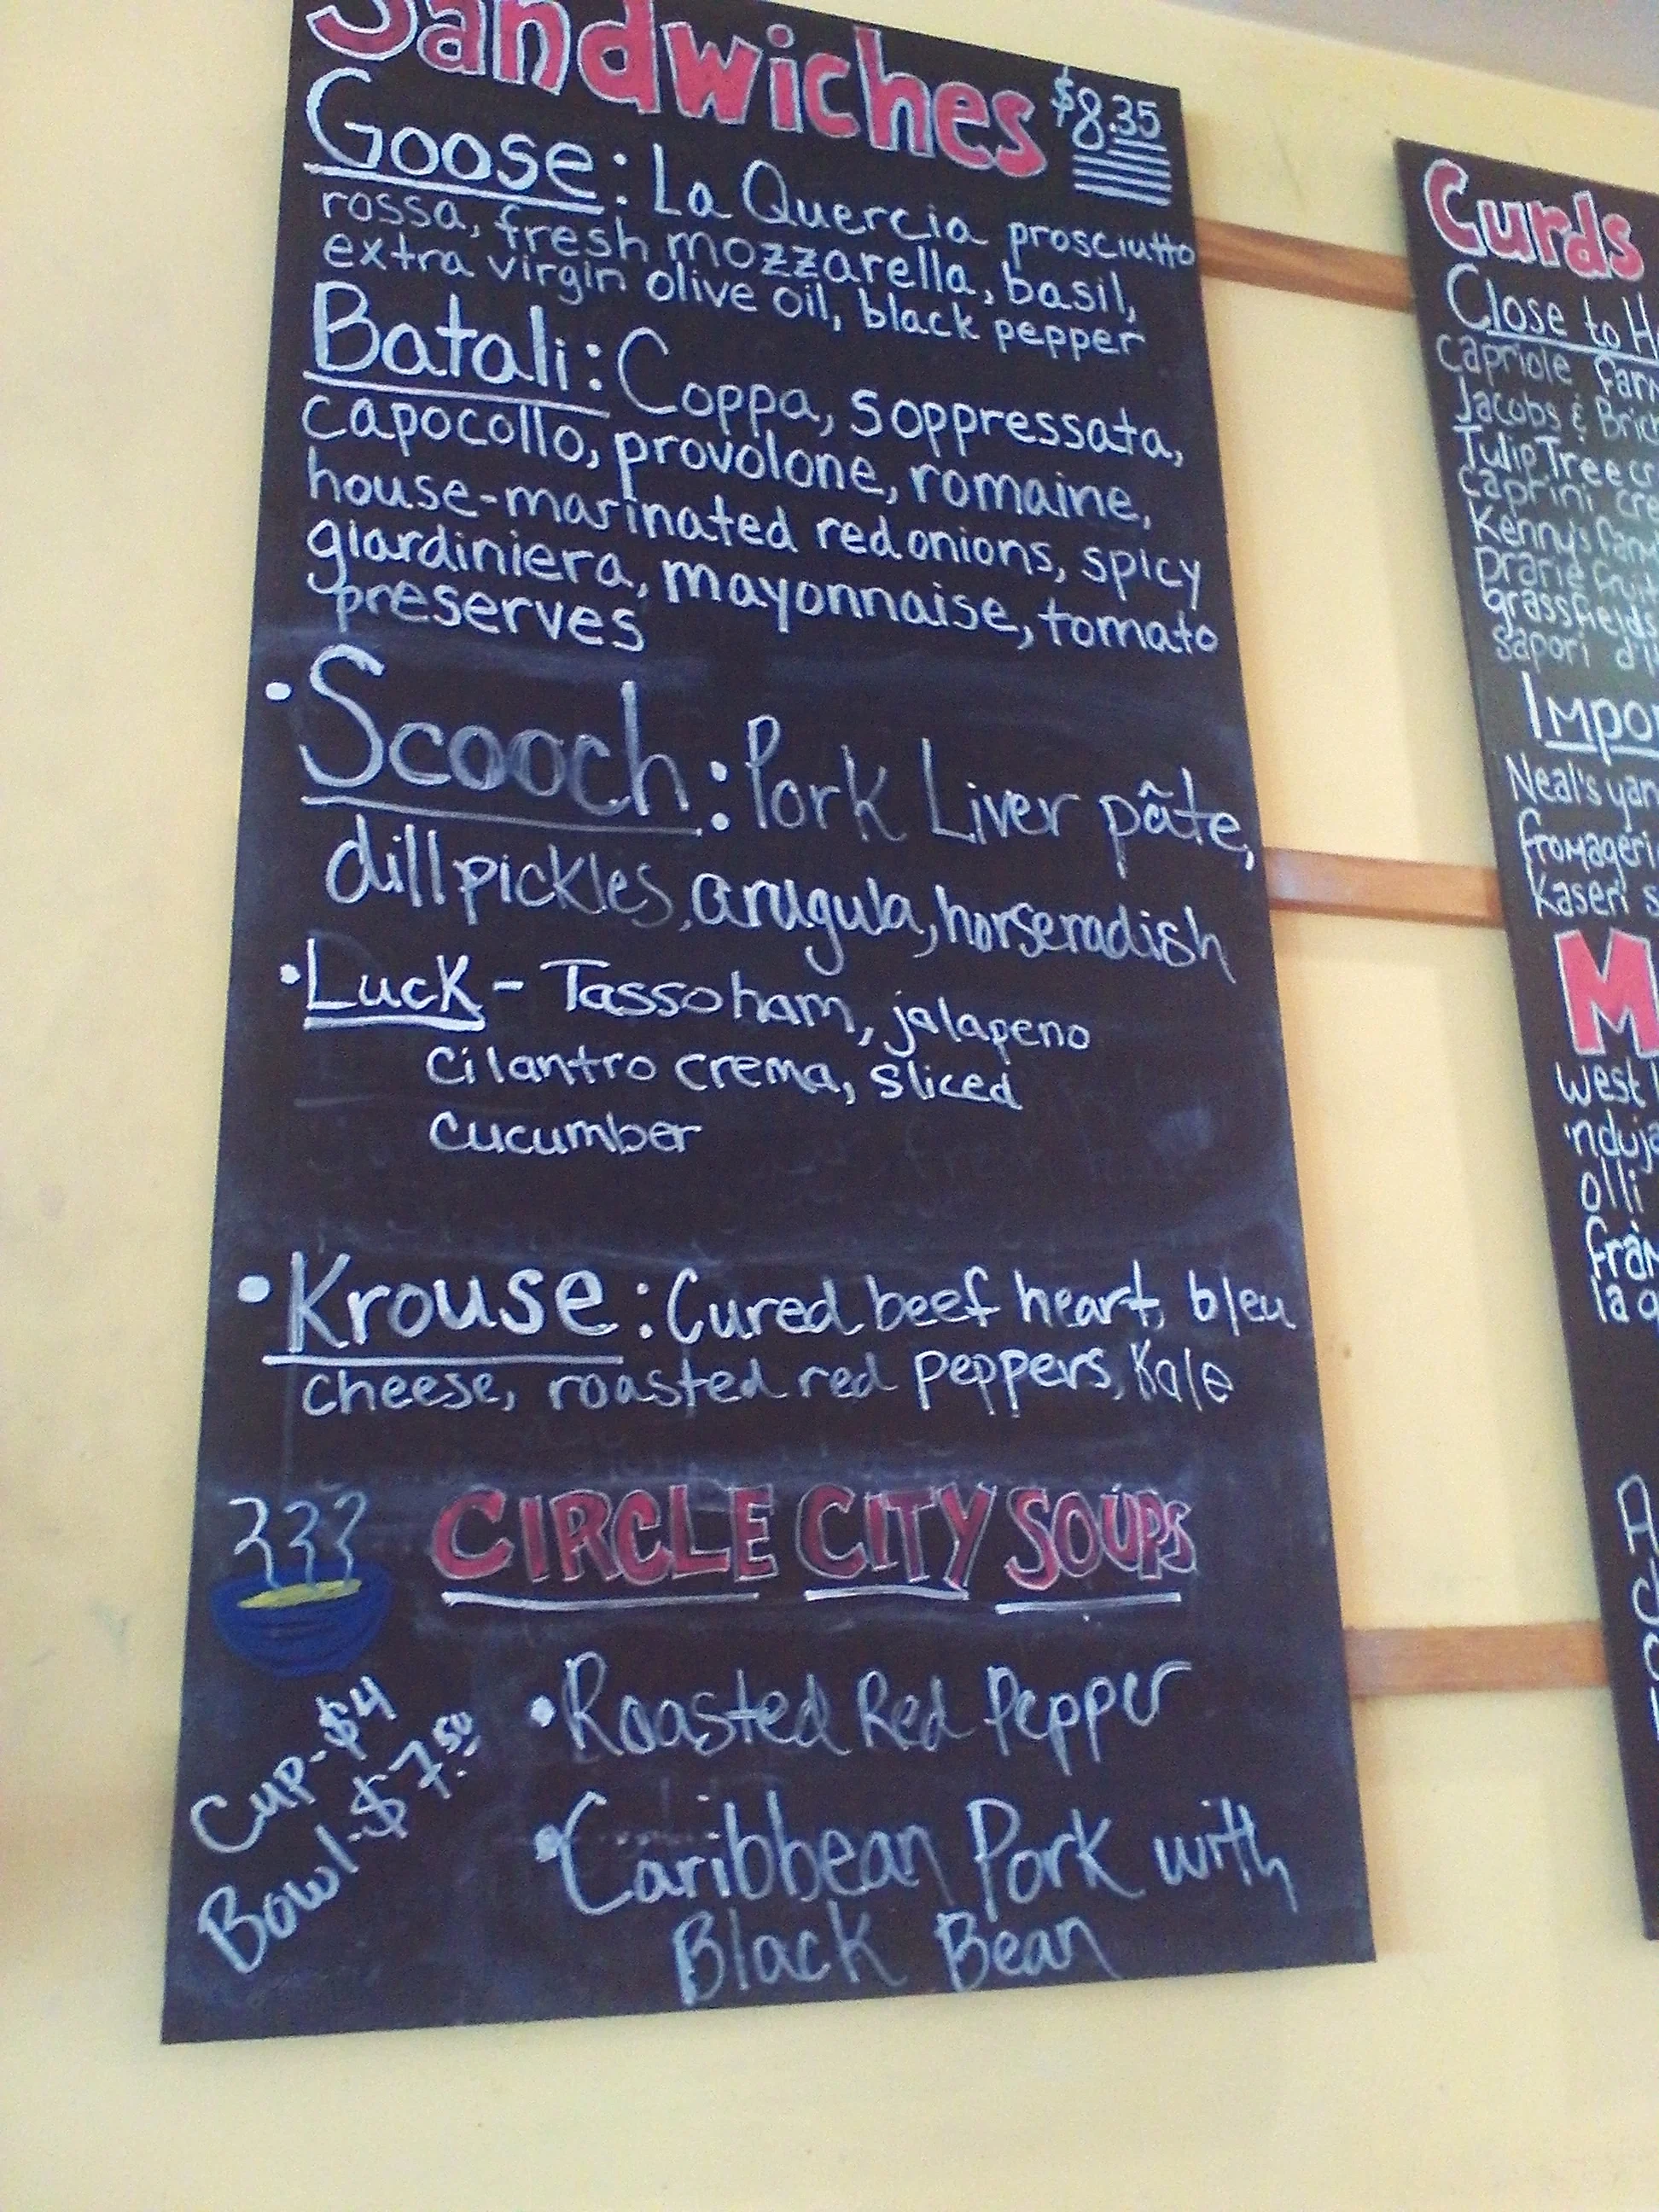 Sandwiches $8.35
Goose: La Quercia prosciutto
rossa, fresh mozzarella, basil,
extra virgin olive oil, black pepper
Batali: Coppa, soppressata,
capocollo, provolone, romaine,
house-marinated red onions, spicy
giardiniera, mayonnaise, tomato
preserves
• Scooch: Pork Liver pâte,
dill pickles, arugula, horseradish
• Luck - Tasso ham, jalapeno
cilantro crema, sliced
cucumber
• Krouse: Cured beef heart, bleu
cheese, roasted red peppers, Kale
CIRCLE CITY SOUPS
Cup-$4
Bowl-$7.50
• Roasted Red Pepper
• Caribbean Pork with
Black Bean
Curds
Close to
Capriole
Jacobs &
Tulip Tree
caprini
Kenny's
prarie
grassfields
sapori
Neal's
Kaseri
west
olli